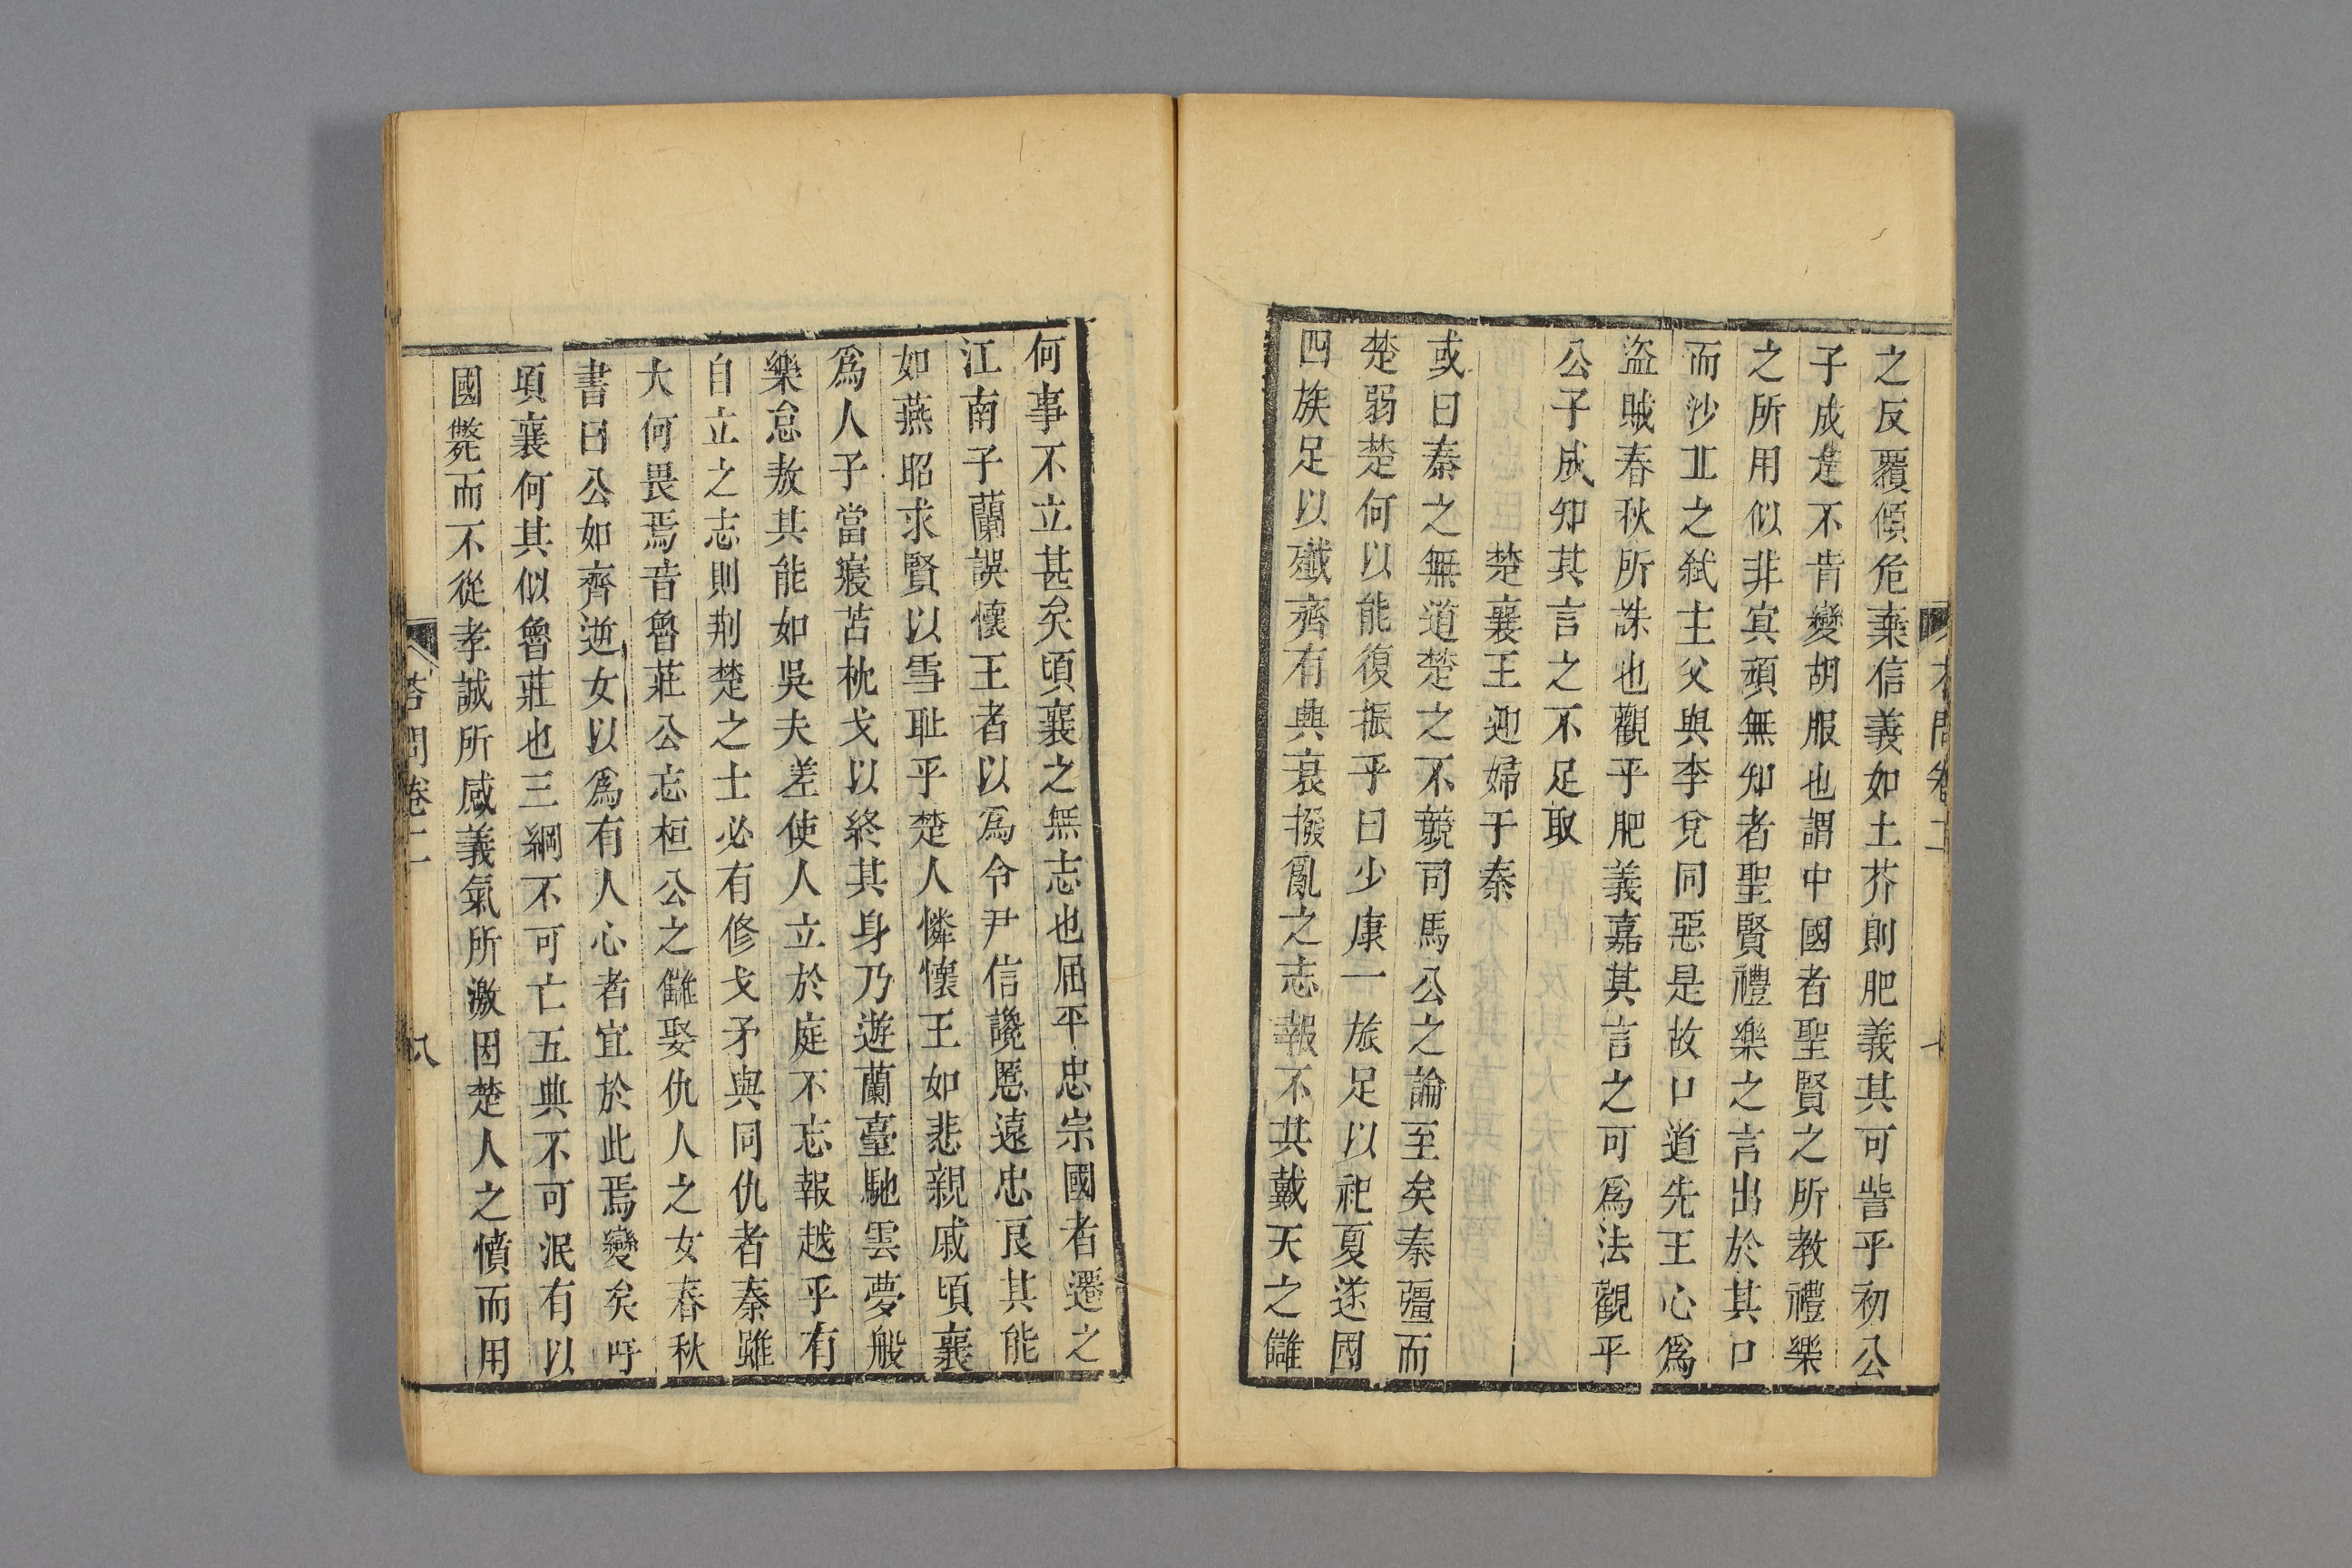 之反覆傾危棄信義如土芥則肥義其可訾乎初公
子成違不肯變胡服也謂中國者聖賢之所教禮樂
之所用似非寘頑無知者聖賢禮樂之言出於其口
而沙丘之弑主父與李兌同惡是故口道先王心爲
盜賊春秋所誅也觀乎肥義嘉其言之可爲法觀乎
公子成知其言之不足取
楚襄王迎婦于秦
或曰秦之無道楚之不競司馬公之論至矣秦彊而
楚弱楚何以能復振乎曰少康一旅足以祀夏遂國
四族足以殲齊有興衰撥亂之志報不共戴天之讎
何事不立甚矣頃襄之無志也屈平忠宗國者遷之
江南子蘭誤懷王者以爲令尹信讒慝遠忠良其能
如燕昭求賢以雪耻乎楚人憐懷王如悲親戚頃襄
爲人子當寢苫枕戈以終其身乃遊蘭臺馳雲夢般
樂怠敖其能如吳夫差使人立於庭不忘報越乎有
自立之志則荆楚之士必有修戈矛與同仇者秦雖
大何畏焉昔魯莊公忘桓公之讎娶仇人之女春秋
書曰公如齊逆女以爲有人心者宜於此焉變矣吁
頃襄何其似魯莊也三綱不可亡五典不可泯有以
國斃而不從孝誠所感義氣所激因楚人之憤而用
答問卷二
八